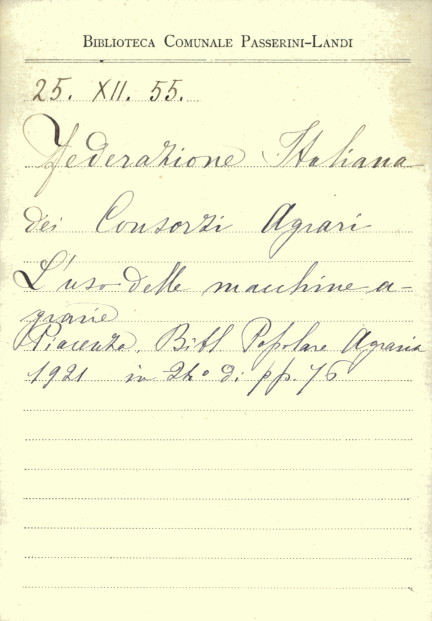 BIBLIOTECA COMUNALE PASSERINI-LANDI
25. XII. 55.
Federazione Italiana
dei Consorzi Agrari
L'uso delle macchine a-
grarie
Piacenza, Bibl Popolare Agraria
1921 in 24° di pp. 76